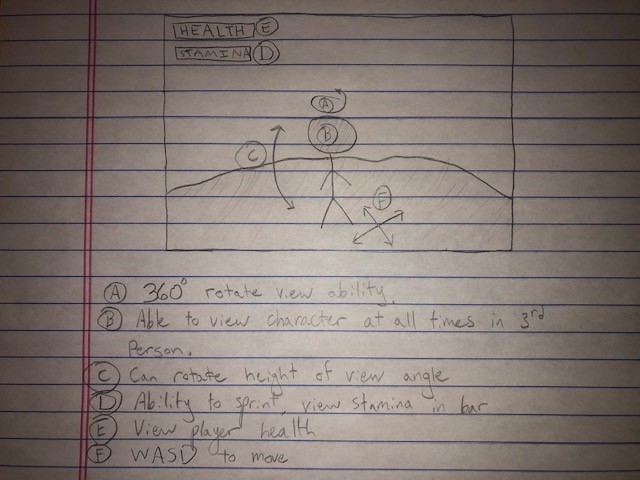 HEALTH E
STAMINA D
A
B
C
F
A 360° rotate view ability.
B Able to view character at all times in 3rd
Person.
C Can rotate height of view angle
D Ability to sprint, view stamina in bar
E View player health
F WASD to move